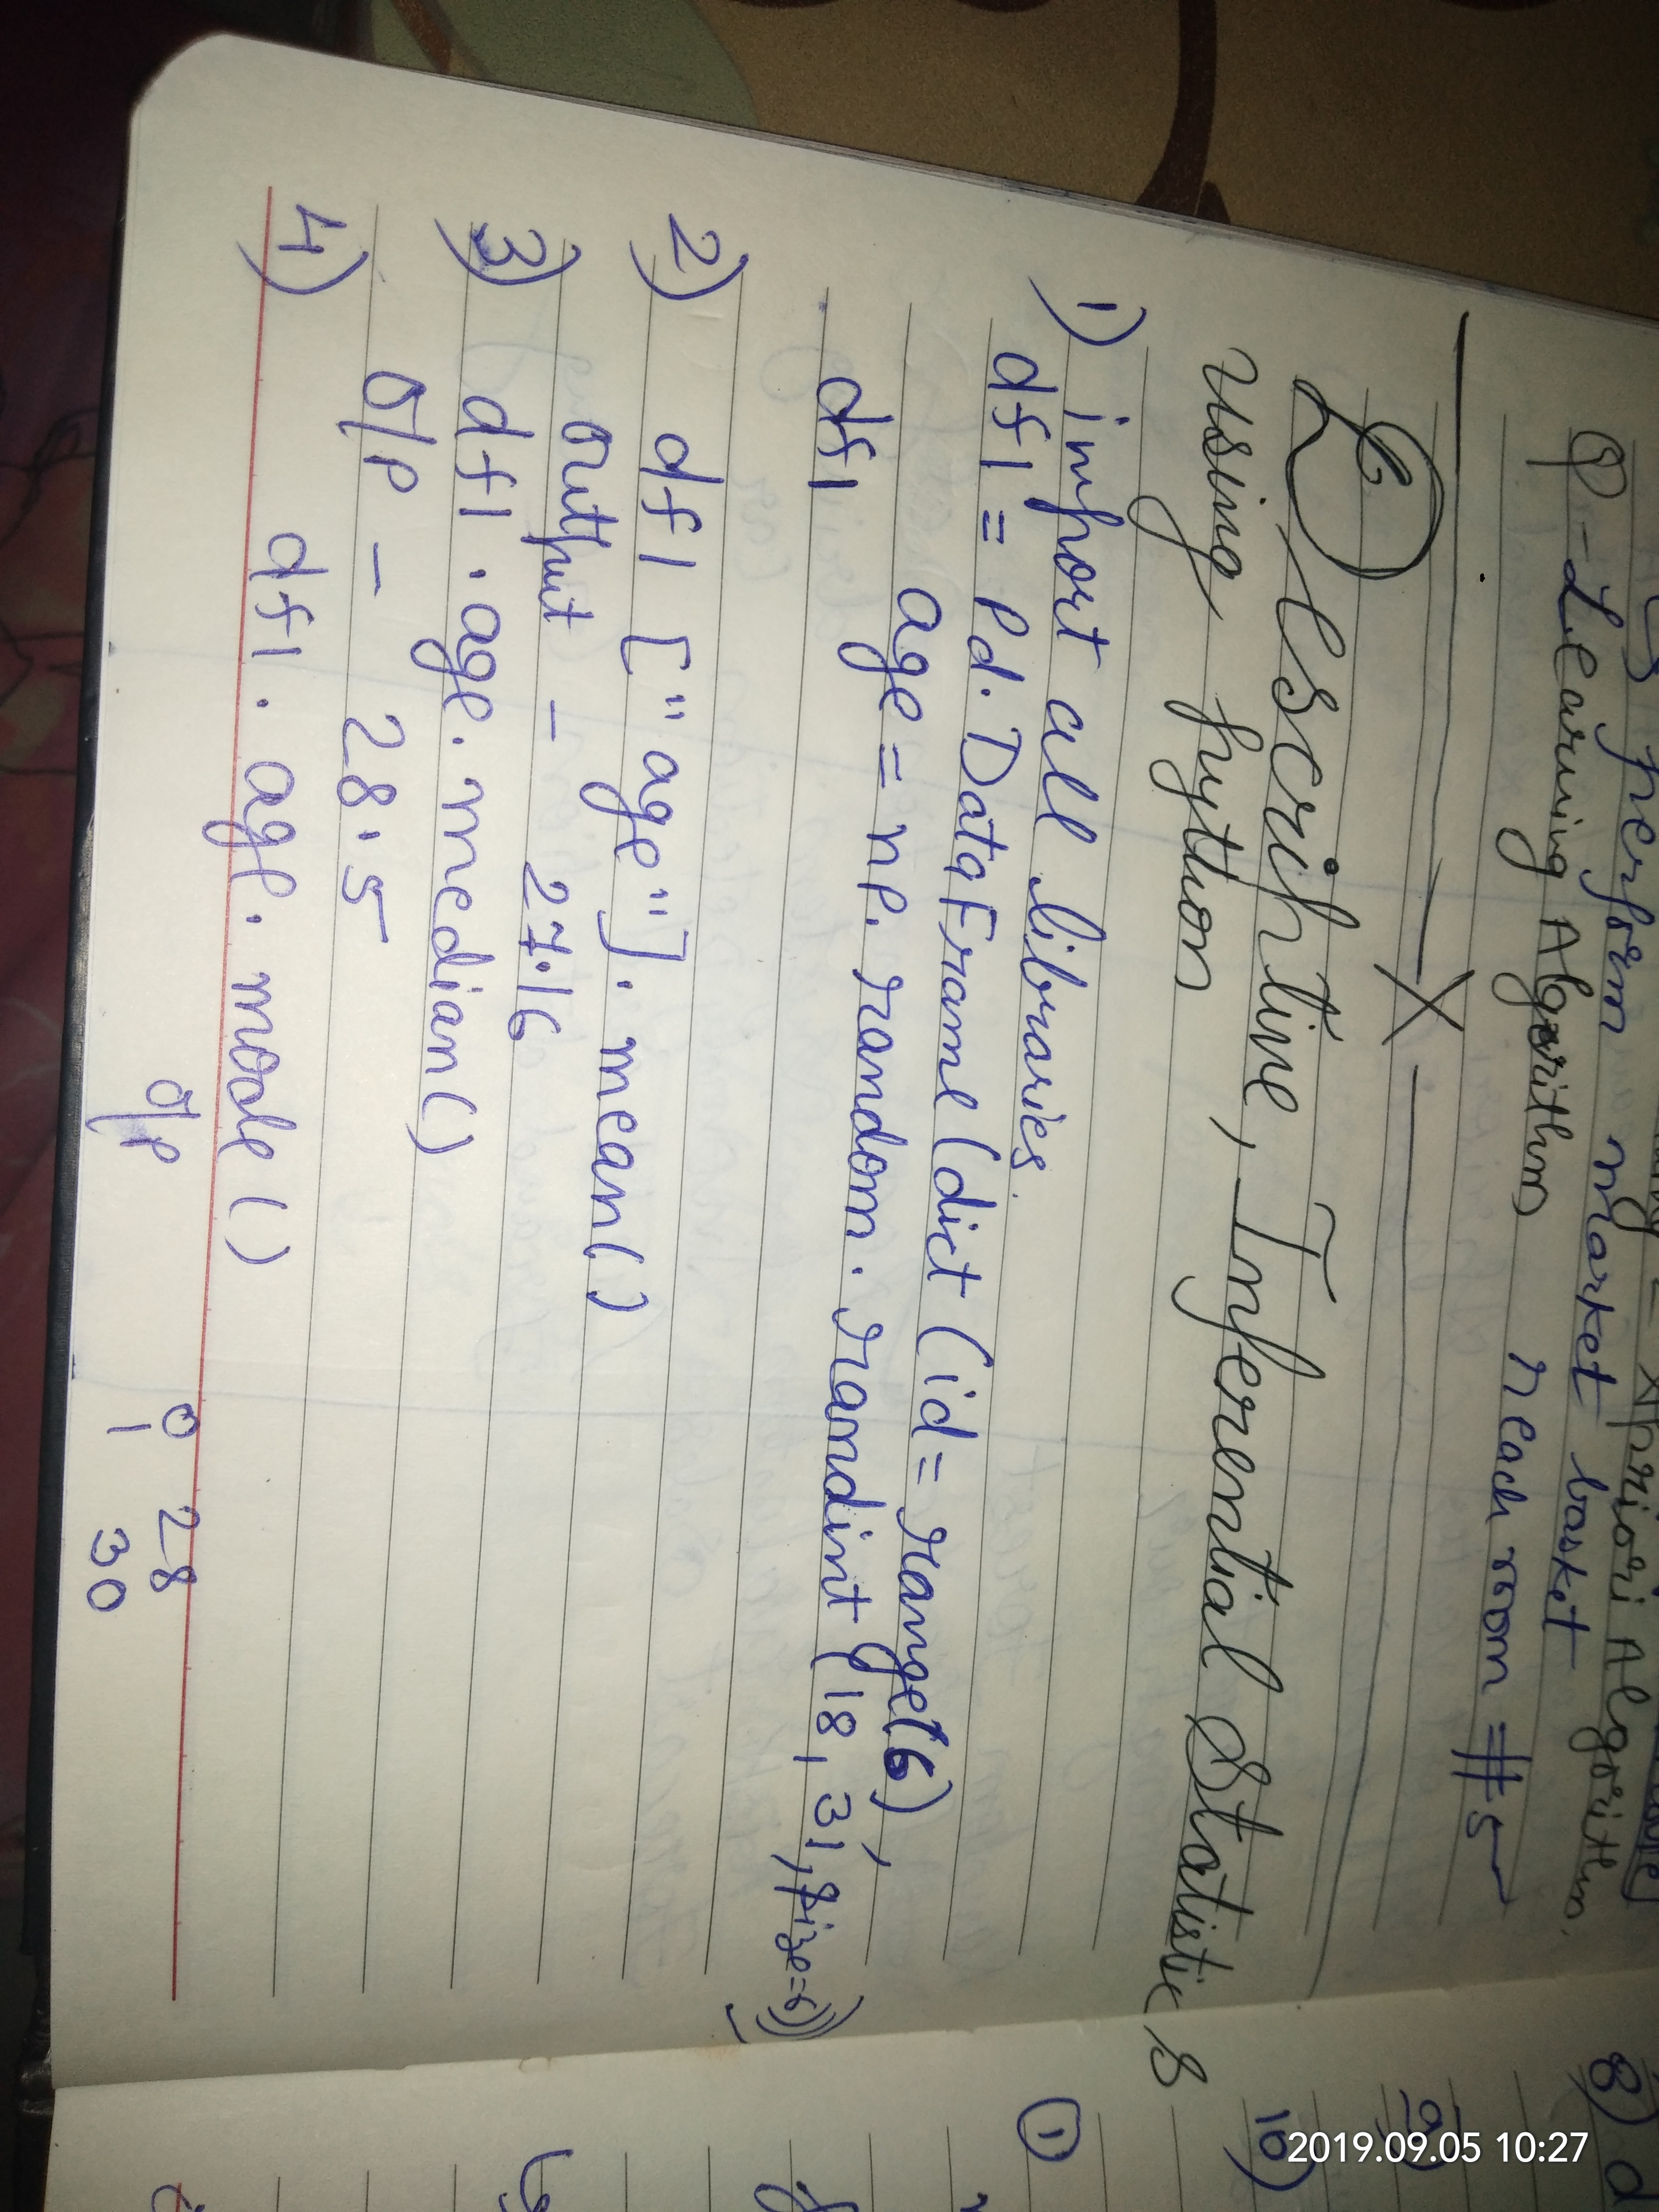 perform market basket
Q-Learning Algorithm
n each room = # 5
Descriptive, Inferential Statistics
using python
1) import all libraries.
df1 = Pd.DataFrame(dict(id=range(6),
age = np.random.randint(18, 31, size=6)))
df1
2) df1["age"].mean()
output - 27.16
3) df1.age.median()
O/P - 28.5
4) df1.age.mode()
O/P 0 28
1 30
8) d
9)
10)
1
2019.09.05 10:27